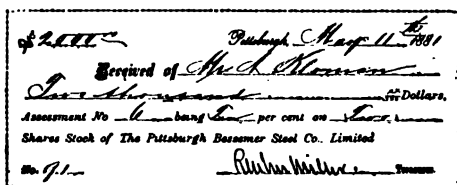 $2000 Pittsburgh, May 11th 1881
Received of Mr A Kloman
Two thousand Dollars.
Assessment No 6 being Ten per cent on Two
Shares Stock of The Pittsburgh Bessemer Steel Co., Limited
No. 71 Reuben Miller Treasurer